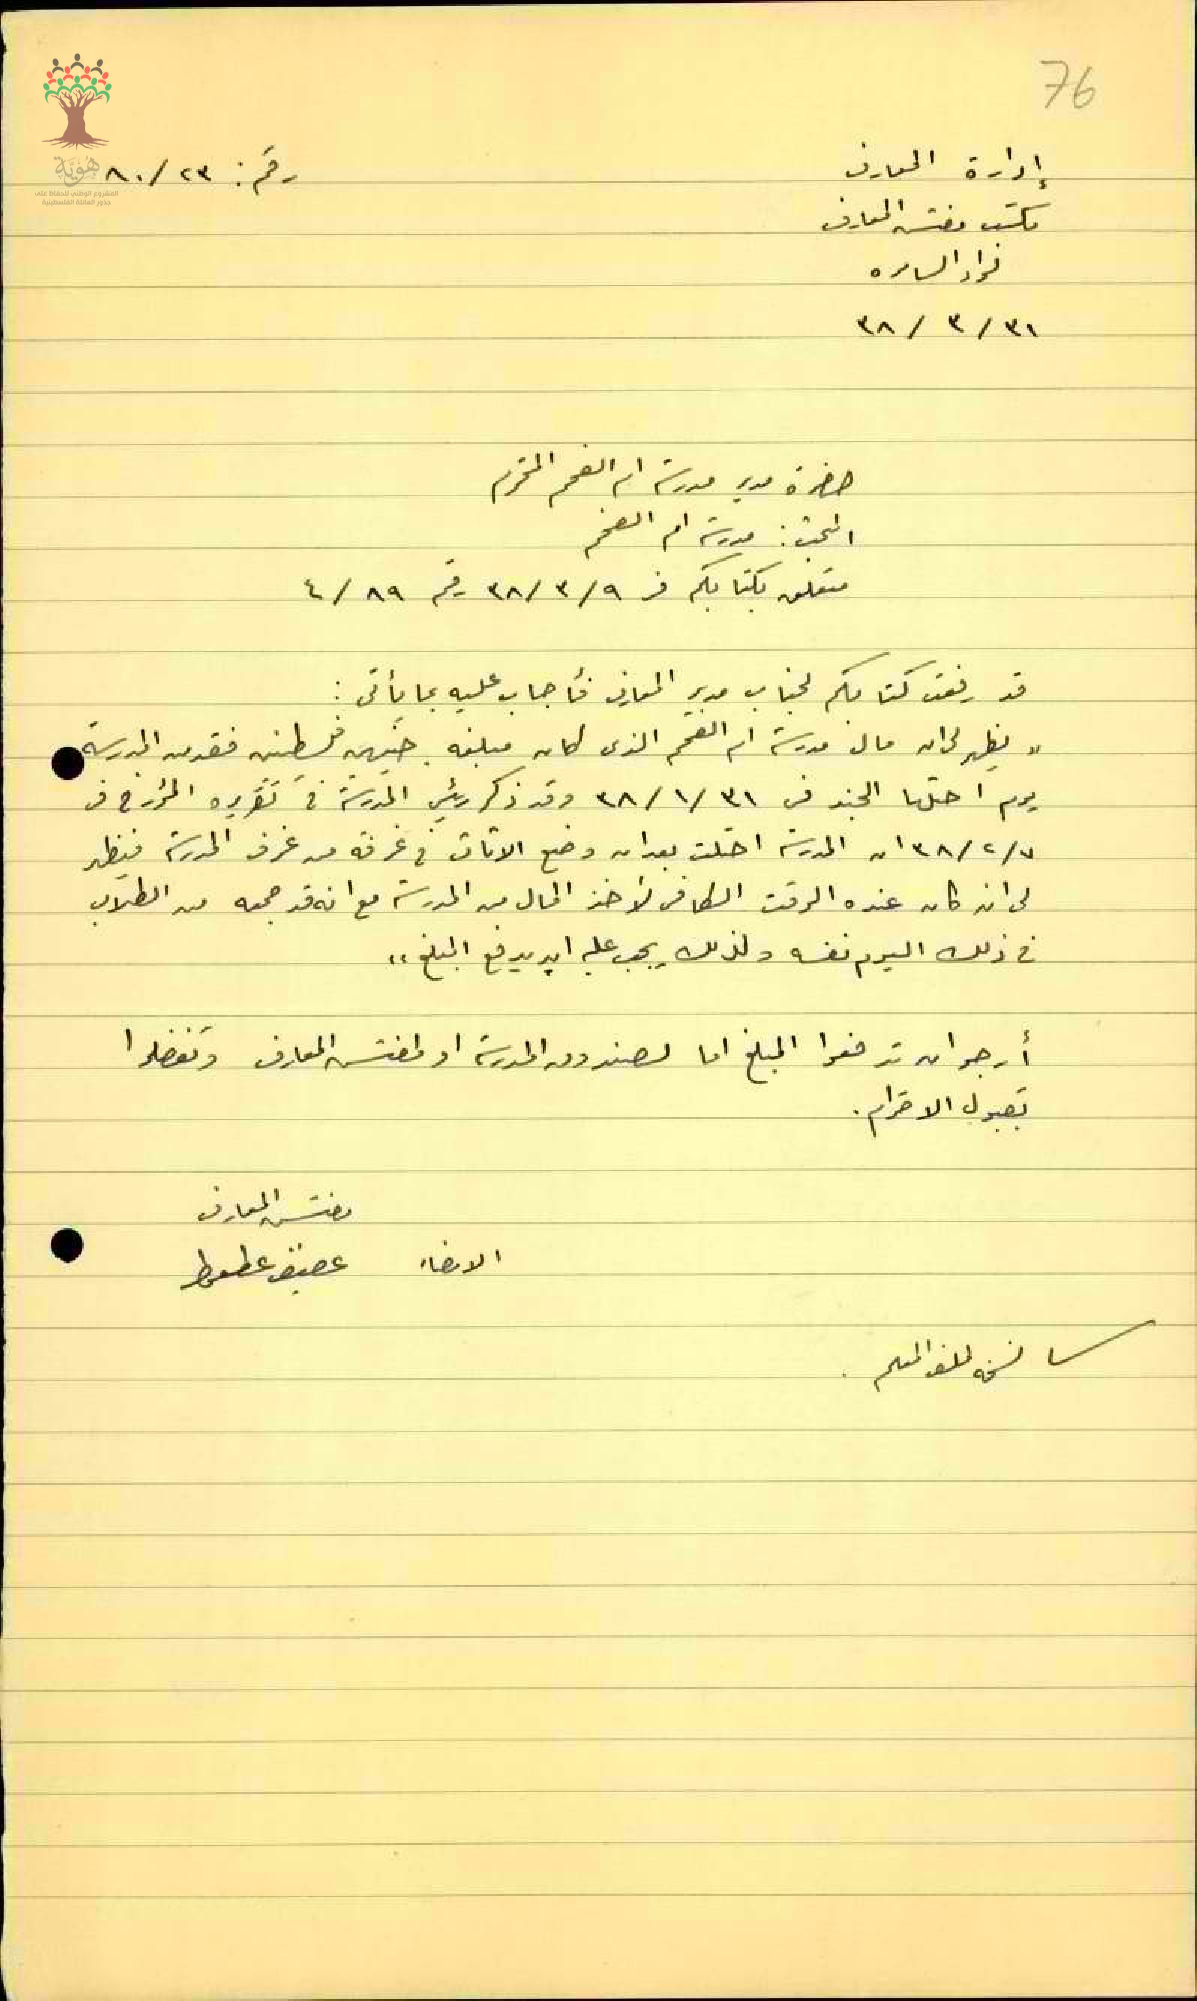 76
هُوِيَّة
المشروع الوطني للحفاظ على
جذور العائلة الفلسطينية
إدارة المعارف
رقم: ٢٣/٨٠
مكتب مفتش المعارف
لواء السامره
٣١/٣/٣٨
حضرة مدير مدرسة ام الفحم المحترم
البحث: مدرسة ام الفحم
متعلق بكتابكم في ٩/٣/٣٨ رقم ٨٩/٤
قد رفعت كتابكم لجناب مدير المعارف فأجاب عليه بما يأتي:
"يظهر لي ان مال مدرسة ام الفحم الذي كان مبلغه جنيهين فلسطينيين فقد من المدرسة
يوم احتلها الجند في ٣١/١/٣٨ وقد ذكر رئيس المدرسة في تقريره المؤرخ في
٧/٢/٣٨ ان المدرسة احتلت بعد ان وضع الاثاث في غرفة من غرف المدرسة فيظهر
لي انه كان عنده الوقت الكافي لأخذ المال من المدرسة مع انه قد جمعه من الطلاب
في ذلك اليوم نفسه ولذلك يجب عليه ان يدفع المبلغ"
أرجو ان تدفعوا المبلغ اما لصندوق المدرسة او لمفتش المعارف وتفضلوا
بقبول الاحترام.
مفتش المعارف
الامضاء عطعوط
نسخه لملف المعلم.